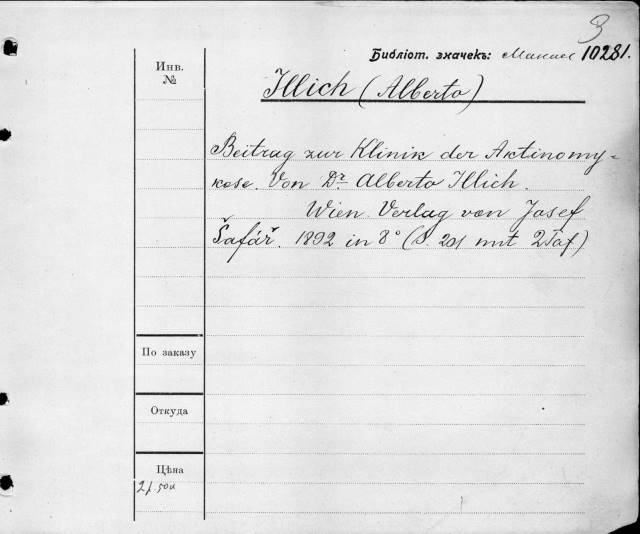 3
Библіот. значекъ: 10281.
Инв.
№
Illich (Alberto)
Beitrag zur Klinik der Aktinomy-
kose. Von Dr. Alberto Illich.
Wien Verlag von Josef
Šafář. 1892 in 8° (S. 201 mit 2 Taf)
По заказу
Откуда
Цѣна